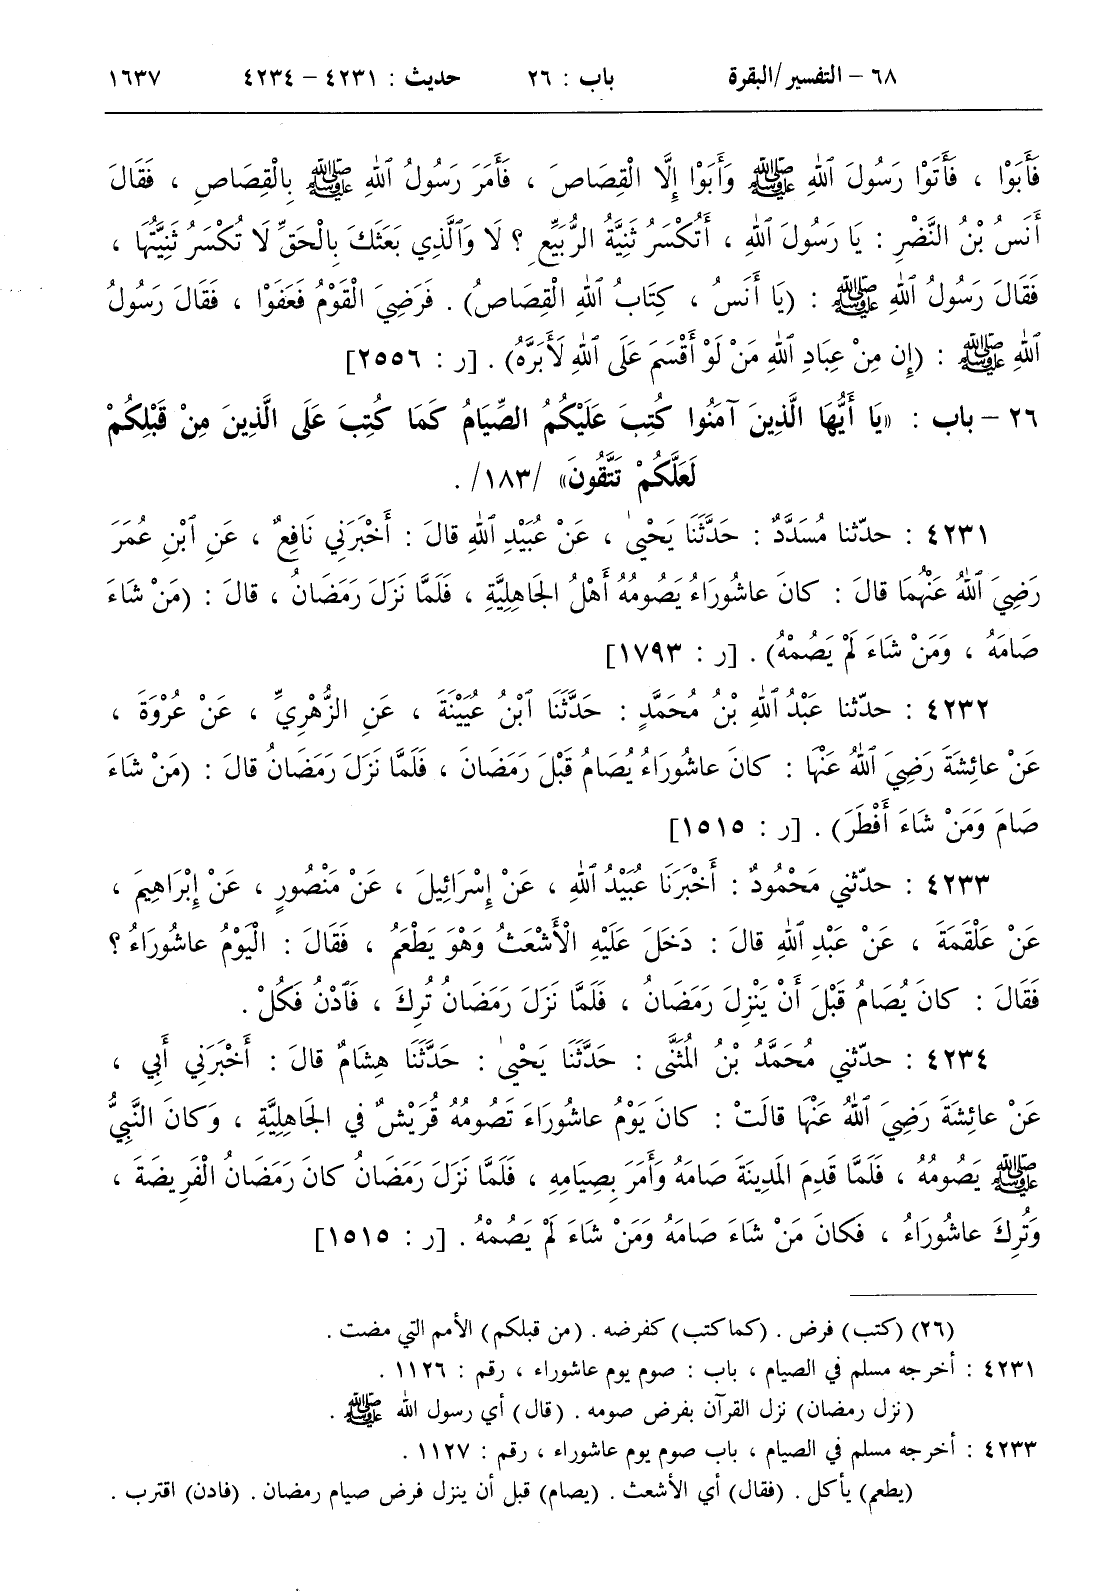 ٦٨ – التفسير/البقرة باب : ٢٦ حديث : ٤٢٣١ – ٤٢٣٤ ١٦٣٧
فَأَبَوْا ، فَأَتَوْا رَسُولَ ٱللهِ ﷺ وَأَبَوْا إِلَّا الْقِصَاصَ ، فَأَمَرَ رَسُولُ ٱللهِ ﷺ بِالْقِصَاصِ ، فَقَالَ
أَنَسُ بْنُ النَّضْرِ : يَا رَسُولَ ٱللهِ ، أَتُكْسَرُ ثَنِيَّةُ الرُّبَيِّعِ ؟ لَا وَٱلَّذِي بَعَثَكَ بِالْحَقِّ لَا تُكْسَرُ ثَنِيَّتُهَا ،
فَقَالَ رَسُولُ ٱللهِ ﷺ : (يَا أَنَسُ ، كِتَابُ ٱللهِ الْقِصَاصُ) . فَرَضِيَ الْقَوْمُ فَعَفَوْا ، فَقَالَ رَسُولُ
ٱللهِ ﷺ : (إِن مِنْ عِبَادِ ٱللهِ مَنْ لَوْ أَقْسَمَ عَلَى ٱللهِ لَأَبَرَّهُ) . [ر : ٢٥٥٦]
٢٦ – باب : «يَا أَيُّهَا الَّذِينَ آمَنُوا كُتِبَ عَلَيْكُمُ الصِّيَامُ كَمَا كُتِبَ عَلَى الَّذِينَ مِنْ قَبْلِكُمْ
لَعَلَّكُمْ تَتَّقُونَ» /١٨٣/ .
٤٢٣١ : حدّثنا مُسَدَّدٌ : حَدَّثَنَا يَحْيَىٰ ، عَنْ عُبَيْدِ ٱللهِ قالَ : أَخْبَرَنِي نَافِعٌ ، عَنِ ٱبْنِ عُمَرَ
رَضِيَ ٱللهُ عَنْهُمَا قالَ : كانَ عاشُورَاءُ يَصُومُهُ أَهْلُ الجَاهِلِيَّةِ ، فَلَمَّا نَزَلَ رَمَضَانُ ، قالَ : (مَنْ شَاءَ
صَامَهُ ، وَمَنْ شَاءَ لَمْ يَصُمْهُ) . [ر : ١٧٩٣]
٤٢٣٢ : حدّثنا عَبْدُ ٱللهِ بْنُ مُحَمَّدٍ : حَدَّثَنَا ٱبْنُ عُيَيْنَةَ ، عَنِ الزُّهْرِيِّ ، عَنْ عُرْوَةَ ،
عَنْ عائِشَةَ رَضِيَ ٱللهُ عَنْهَا : كانَ عاشُورَاءُ يُصَامُ قَبْلَ رَمَضَانَ ، فَلَمَّا نَزَلَ رَمَضَانُ قالَ : (مَنْ شَاءَ
صَامَ وَمَنْ شَاءَ أَفْطَرَ) . [ر : ١٥١٥]
٤٢٣٣ : حدّثني مَحْمُودٌ : أَخْبَرَنَا عُبَيْدُ ٱللهِ ، عَنْ إِسْرَائِيلَ ، عَنْ مَنْصُورٍ ، عَنْ إِبْرَاهِيمَ ،
عَنْ عَلْقَمَةَ ، عَنْ عَبْدِ ٱللهِ قالَ : دَخَلَ عَلَيْهِ الْأَشْعَثُ وَهْوَ يَطْعَمُ ، فَقَالَ : الْيَوْمُ عاشُورَاءُ ؟
فَقَالَ : كانَ يُصَامُ قَبْلَ أَنْ يَنْزِلَ رَمَضَانُ ، فَلَمَّا نَزَلَ رَمَضَانُ تُرِكَ ، فَٱدْنُ فَكُلْ .
٤٢٣٤ : حدّثني مُحَمَّدُ بْنُ المُثَنَّى : حَدَّثَنَا يَحْيَىٰ : حَدَّثَنَا هِشَامٌ قالَ : أَخْبَرَنِي أَبِي ،
عَنْ عائِشَةَ رَضِيَ ٱللهُ عَنْهَا قالَتْ : كانَ يَوْمُ عاشُورَاءَ تَصُومُهُ قُرَيْشٌ في الجَاهِلِيَّةِ ، وَكانَ النَّبِيُّ
ﷺ يَصُومُهُ ، فَلَمَّا قَدِمَ المَدِينَةَ صَامَهُ وَأَمَرَ بِصِيَامِهِ ، فَلَمَّا نَزَلَ رَمَضَانُ كانَ رَمَضَانُ الْفَرِيضَةَ ،
وَتُرِكَ عاشُورَاءُ ، فَكانَ مَنْ شَاءَ صَامَهُ وَمَنْ شَاءَ لَمْ يَصُمْهُ . [ر : ١٥١٥]
(٢٦) (كتب) فرض . (كما كتب) كفرضه . (من قبلكم) الأمم التي مضت .
٤٢٣١ : أخرجه مسلم في الصيام ، باب : صوم يوم عاشوراء ، رقم : ١١٢٦ .
(نزل رمضان) نزل القرآن بفرض صومه . (قال) أي رسول الله ﷺ .
٤٢٣٣ : أخرجه مسلم في الصيام ، باب صوم يوم عاشوراء ، رقم : ١١٢٧ .
(يطعم) يأكل . (فقال) أي الأشعث . (يصام) قبل أن ينزل فرض صيام رمضان . (فادن) اقترب .